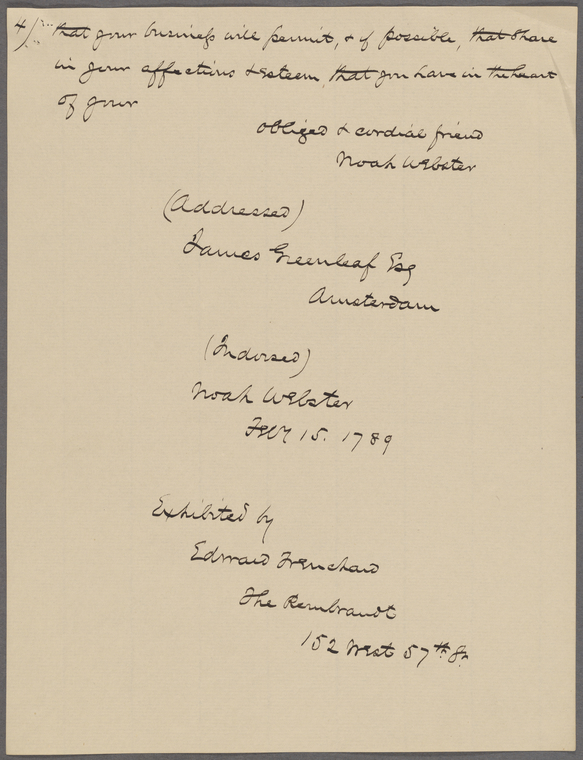 4/ that your business will permit, & if possible, that share
in your affections & esteem, that you have in the heart
of your
obliged & cordial friend
Noah Webster
(Addressed)
James Greenleaf Esq
Amsterdam
(Indorsed)
Noah Webster
Feby 15. 1789
Exhibited by
Edward Trenchard
The Rembrandt
152 West 57th St.